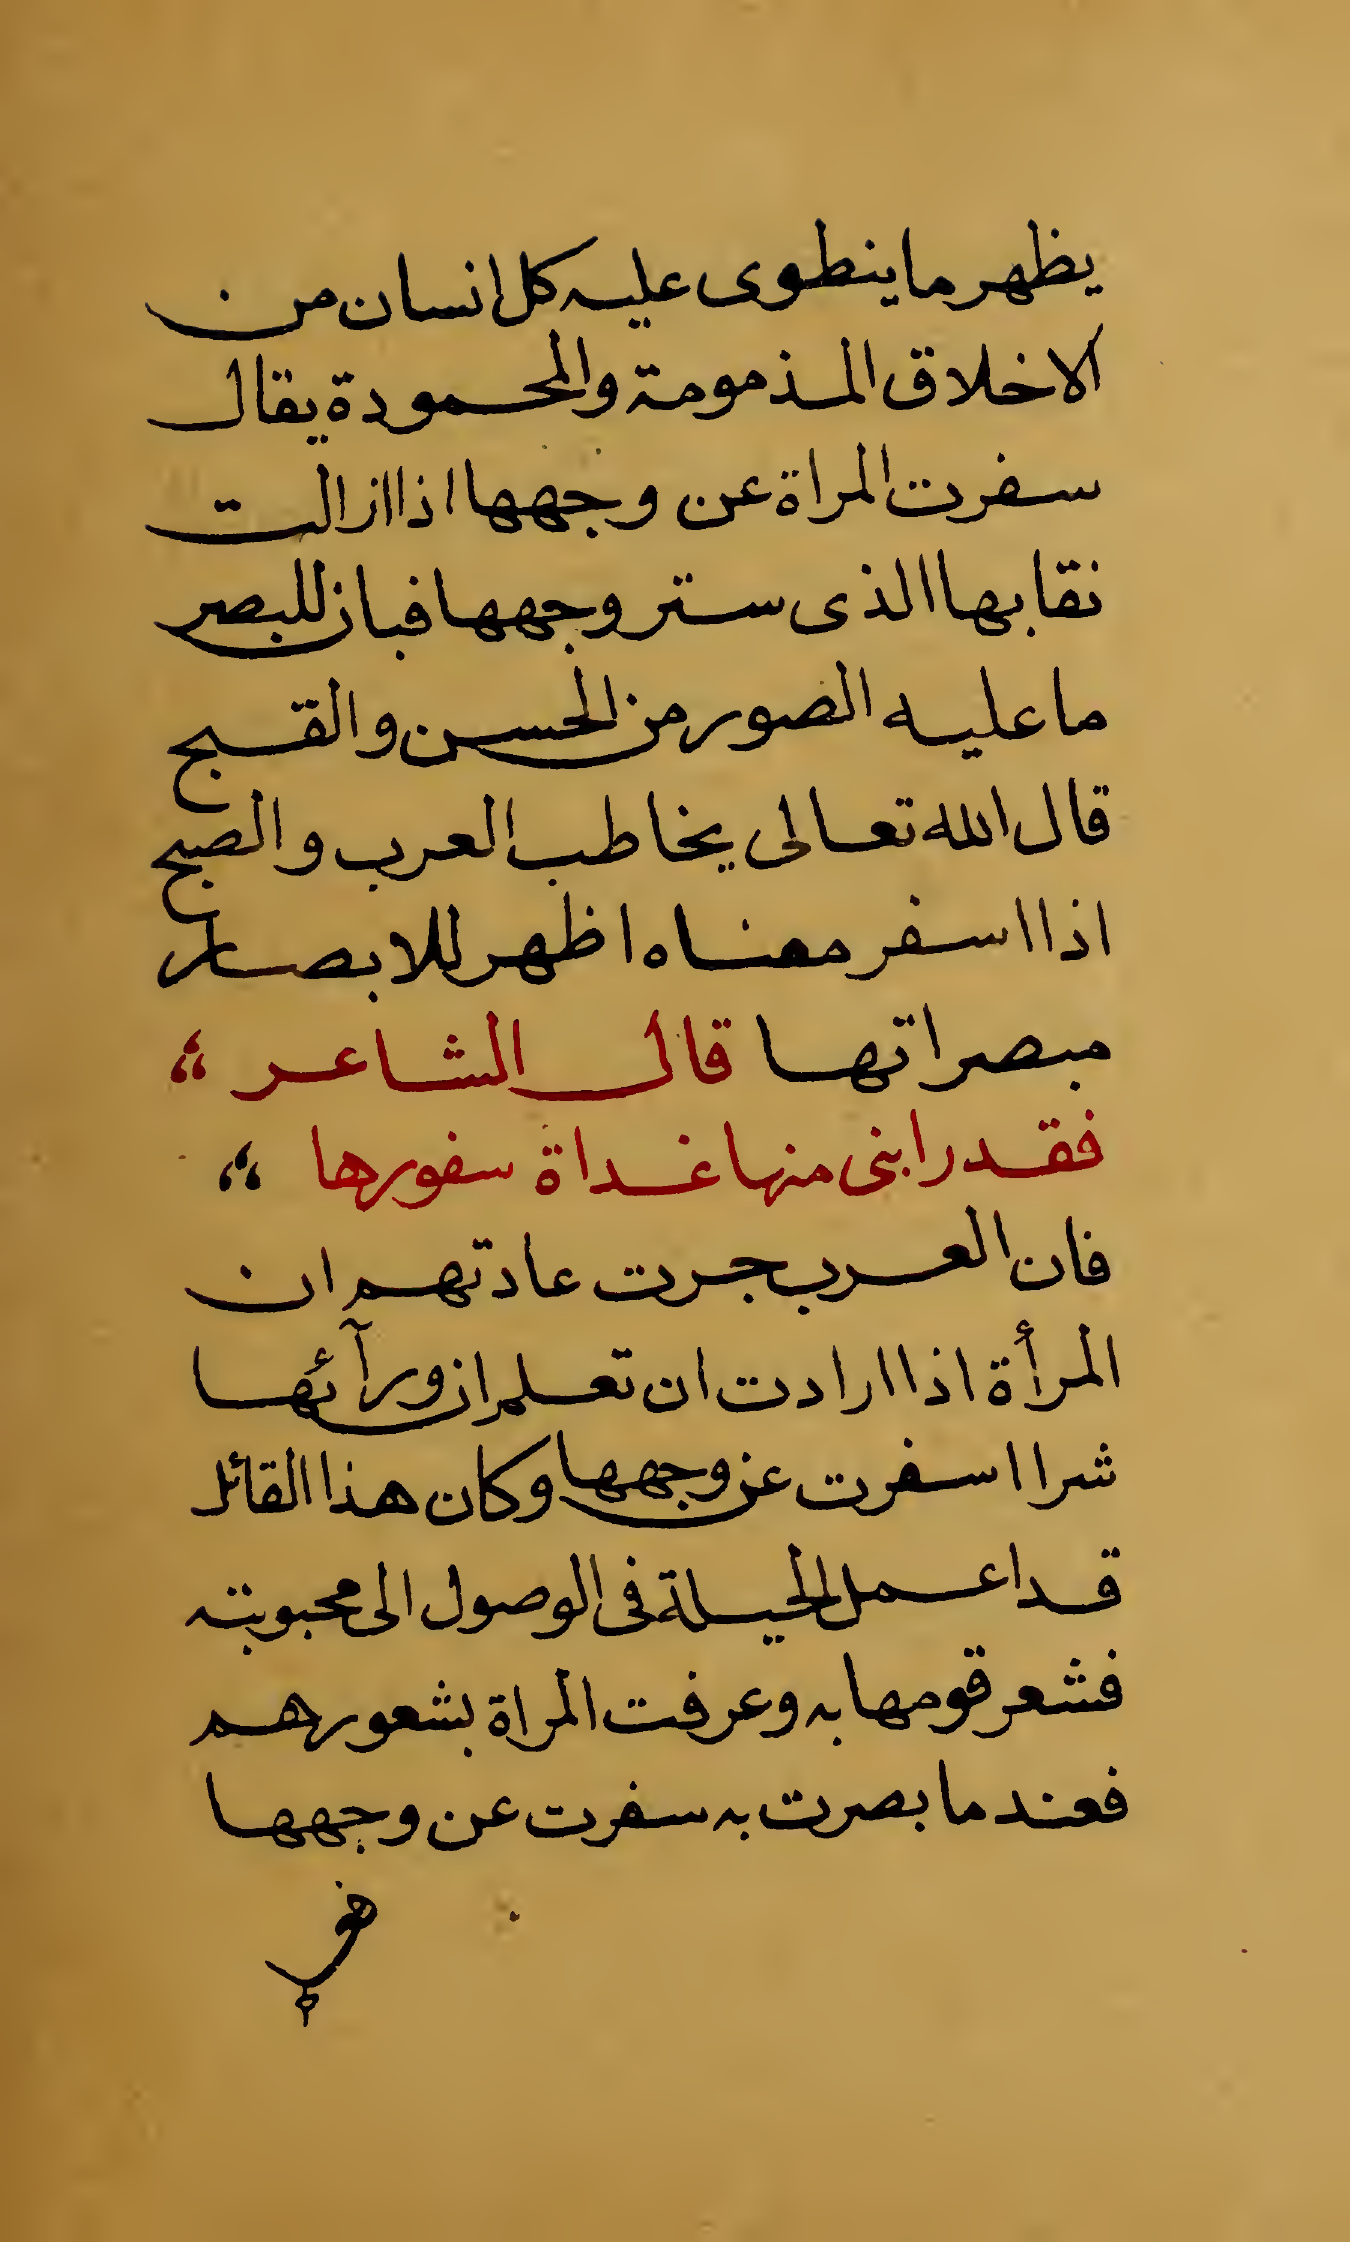 يظهر ما ينطوى عليه كل انسان من
الاخلاق المذمومة والمحمودة يقال
سفرت المراة عن وجهها اذا ازالت
نقابها الذى ستر وجهها فبان للبصر
ما عليه الصور من الحسن والقبح
قال الله تعالى يخاطب العرب والصبح
اذا اسفر معناه اظهر للابصار
مبصراتها قال الشاعر ؞
فقد رابنى منها غداة سفورها ؞
فان العرب جرت عادتهم ان
المرأة اذا ارادت ان تعلم ان ورآئها
شرا اسفرت عن وجهها وكان هذا القائل
قد اعمل الحيلة فى الوصول الى محبوبته
فشعر قومها به وعرفت المراة بشعورهم
فعند ما بصرت به سفرت عن وجهها